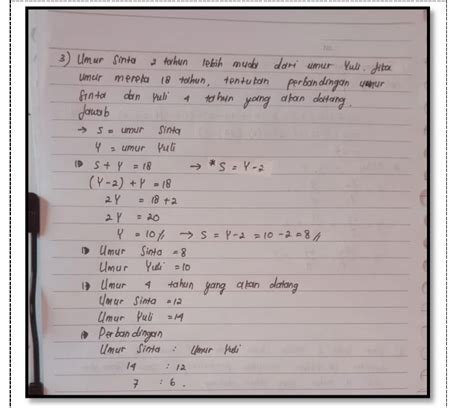 3) Umur Sinta 2 tahun lebih muda dari umur Yuli. Jika
umur mereka 18 tahun, tentukan perbandingan umur
Sinta dan Yuli 4 tahun yang akan datang.
Jawab
→ S = umur Sinta
Y = umur Yuli
S + Y = 18 → * S = Y-2
(Y-2) + Y = 18
2Y = 18+2
2Y = 20
Y = 10 // → S = Y-2 = 10-2 = 8 //
Umur Sinta = 8
Umur Yuli = 10
Umur 4 tahun yang akan datang
Umur Sinta = 12
Umur Yuli = 14
Perbandingan
Umur Sinta : Umur Yuli
14 : 12
7 : 6 .